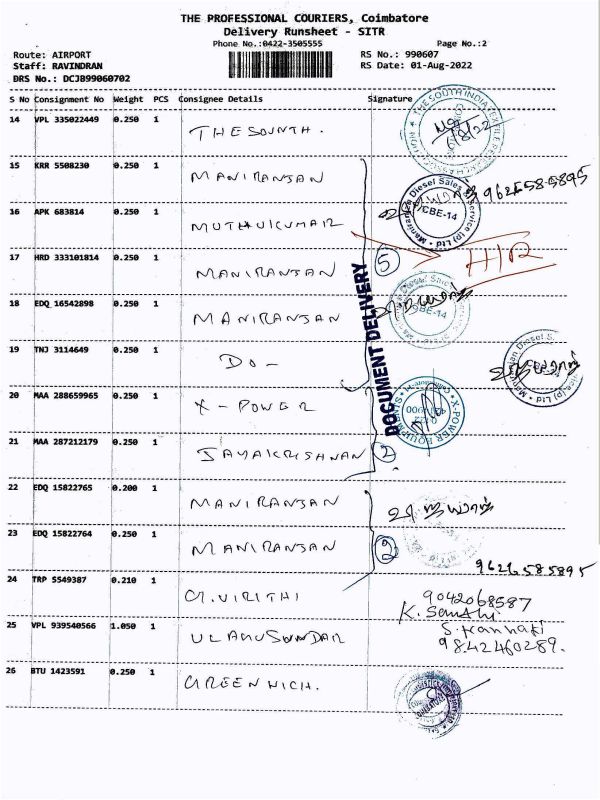 THE PROFESSIONAL COURIERS, Coimbatore
Delivery Runsheet - SITR
Phone No.:0422-3505555 Page No.:2
Route: AIRPORT RS No.: 990607
Staff: RAVINDRAN RS Date: 01-Aug-2022
DRS No.: DCJB99060702
S No Consignment No Weight PCS Consignee Details Signature
14 VPL 335022449 0.250 1 THE SOUNTH.
15 KRR 5508230 0.250 1 MANIRANJAN
9626585895
16 APK 683814 0.250 1 MUTHUKUMAR
Maniranjan Diesel Sales & Service (p) Ltd
CBE-14
17 HRD 333101814 0.250 1 MANIRANJAN 5 H/R
DOCUMENT DELIVERY
18 EDQ 16542898 0.250 1 MANIRANJAN
CBE-14
19 TNJ 3114649 0.250 1 DO -
20 MAA 288659965 0.250 1 X - POWER
X-POWER EQUIPMENTS
21 MAA 287212179 0.250 1 JAYAKRISHNAN 2
22 EDQ 15822765 0.200 1 MANIRANJAN
23 EDQ 15822764 0.250 1 MANIRANJAN 2
9626585895
24 TRP 5549387 0.210 1 G.VIRITHI 9042068587
K. Santhi
25 VPL 939540566 1.050 1 ULAMUSUNDAR
9842460289.
26 BTU 1423591 0.250 1 GREENWICH.